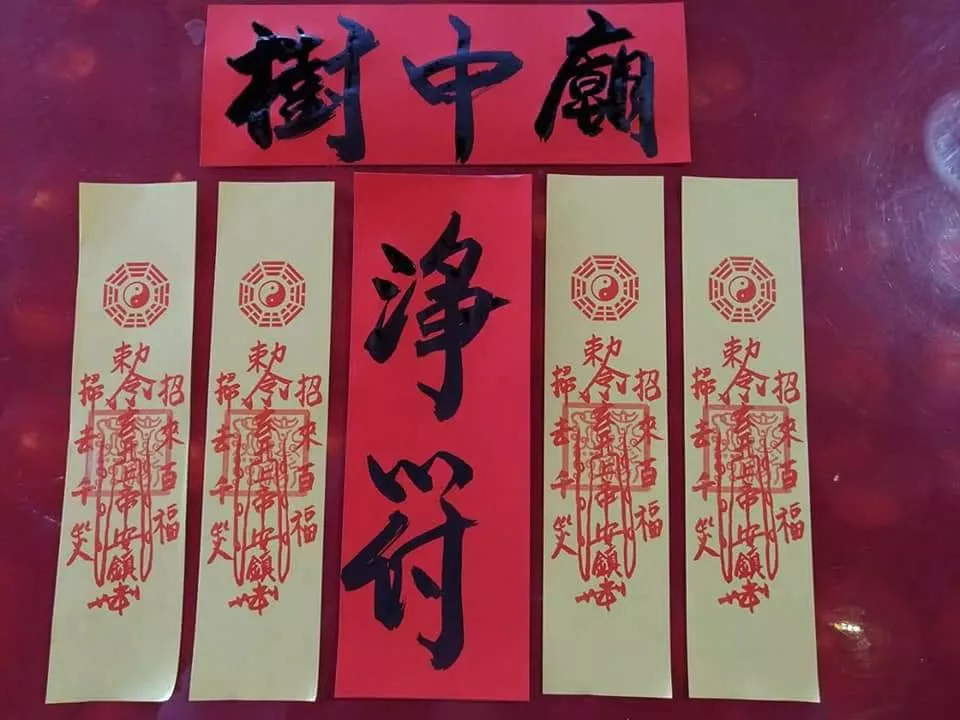 樹中廟
淨符
勅令
帝安鎮
招來百福
掃去千災
勅令
帝安鎮
招來百福
掃去千災
勅令
帝安鎮
招來百福
掃去千災
勅令
帝安鎮
招來百福
掃去千災